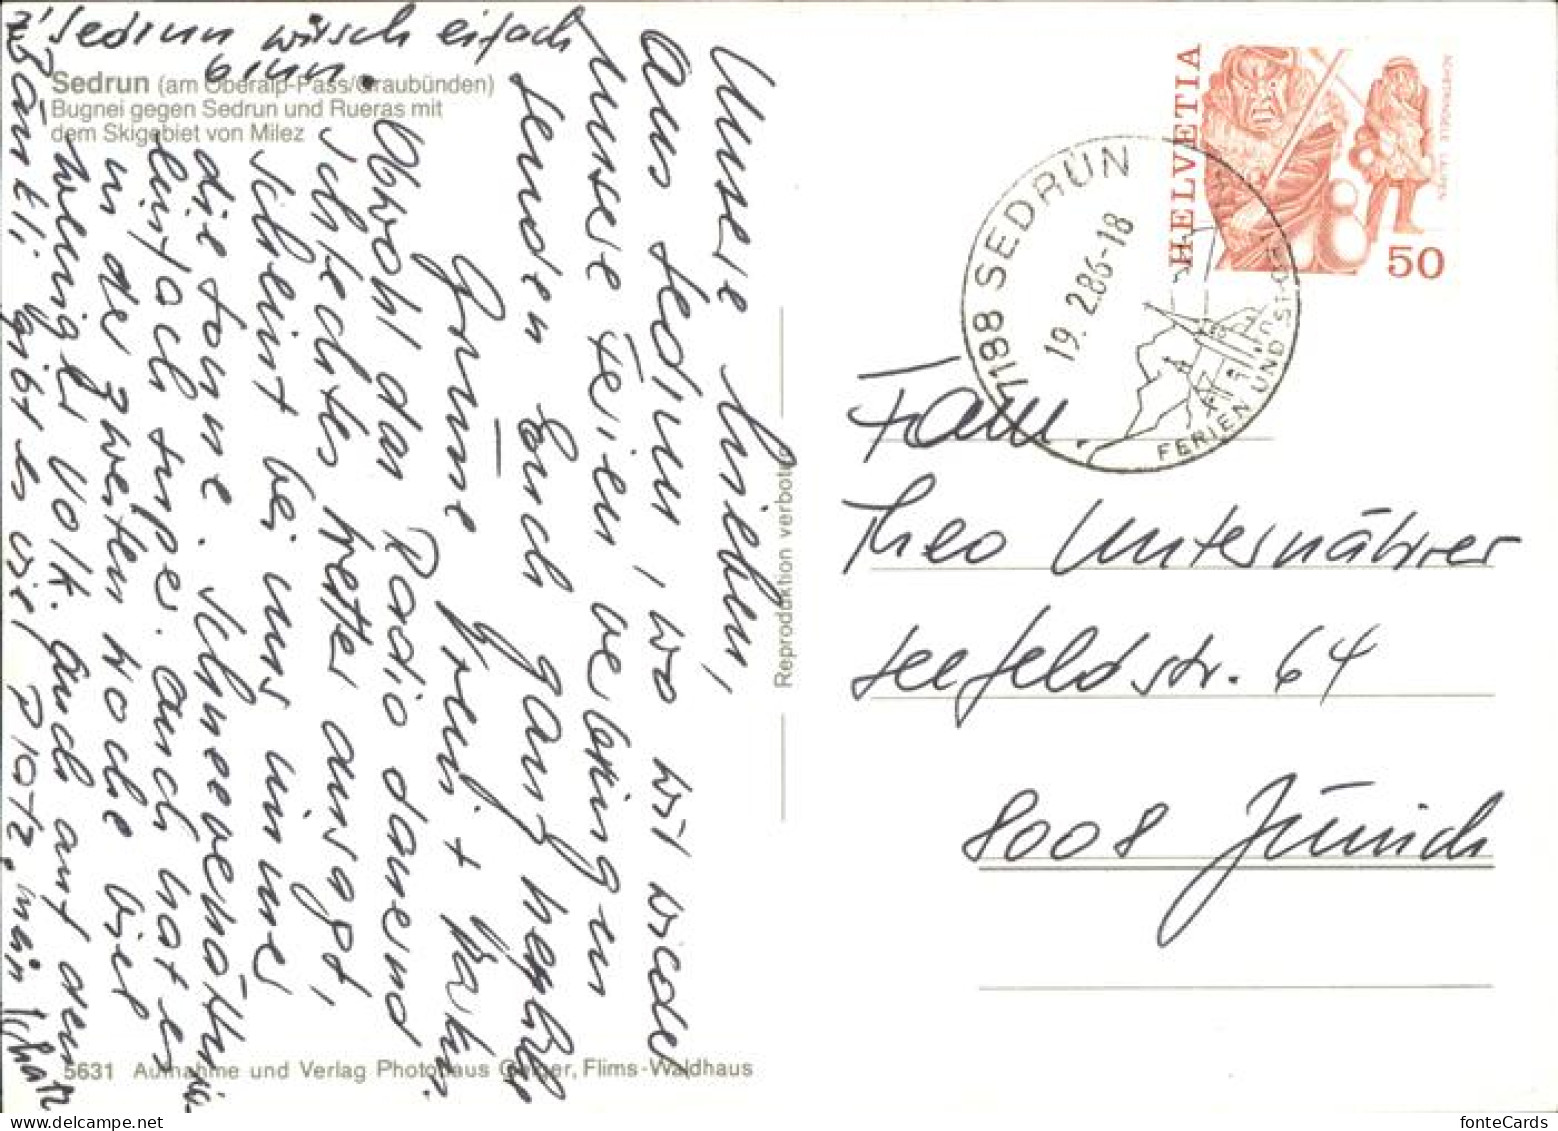 Unsere Lieben,
Aus Sedrun, wo wir wieder
unsere Ferien verbringen
senden Euch ganz herzliche
Grüsse
Obwohl das Radio dauernd
schlechtes Wetter ansagt,
scheint bei uns immer
die Sonne. Schneeverhältnisse
einfach super. Auch hat es
in der zweiten Woche viel
weniger Volk. Auch auf dem
Bänkli gibt es viel Platz. Mein Schatz
z' Sedrun wirsch eifach
Sedrun (am Oberalp-Pass/Graubünden)
Bugnei gegen Sedrun und Rueras mit
dem Skigebiet von Milez
5631 Aufnahme und Verlag Photohaus Geiger, Flims-Waldhaus
Reproduktion verboten
HELVETIA
50
7188 SEDRUN
19.2.86-18
FERIEN UND
Fam.
Theo Unternährer
Seefeldstr. 64
8008 Zürich
fonteCards